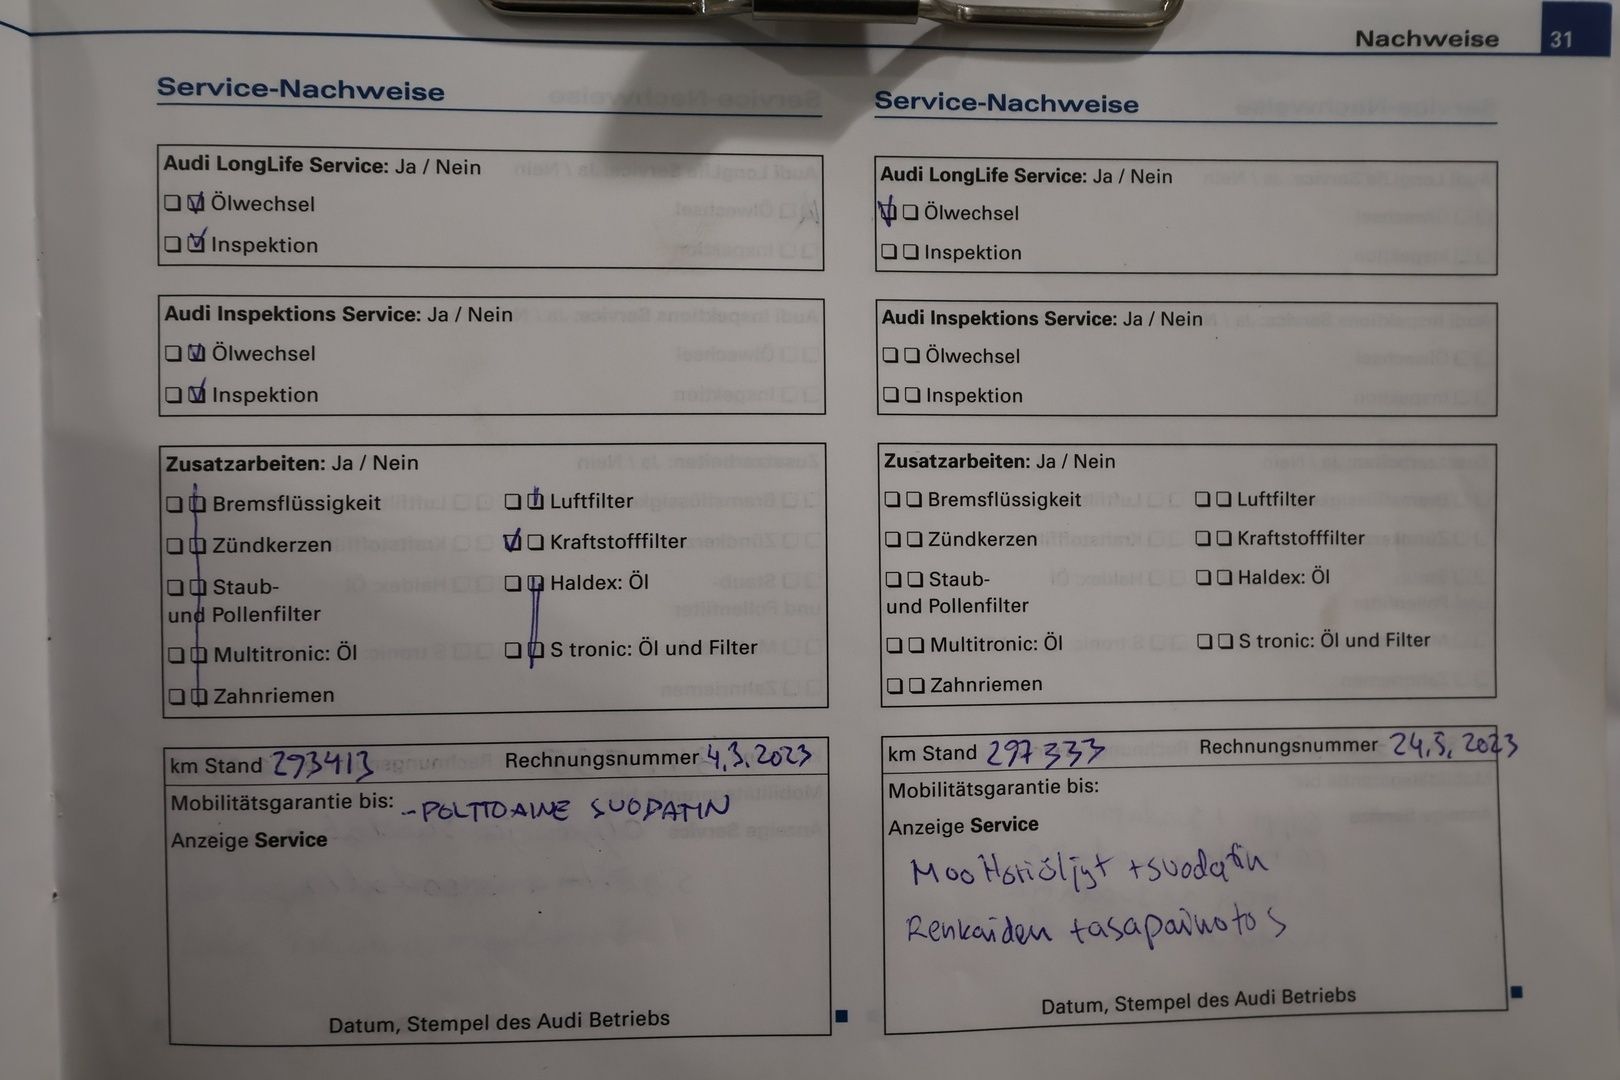 Nachweise 31
Service-Nachweise
Audi LongLife Service: Ja / Nein
Ölwechsel
Inspektion
Audi Inspektions Service: Ja / Nein
Ölwechsel
Inspektion
Zusatzarbeiten: Ja / Nein
Bremsflüssigkeit Luftfilter
Zündkerzen Kraftstofffilter
Staub- Haldex: Öl
und Pollenfilter
Multitronic: Öl S tronic: Öl und Filter
Zahnriemen
km Stand 293413 Rechnungsnummer 4,3,2023
Mobilitätsgarantie bis: -POLTTOAINE SUODATIN
Anzeige Service
Datum, Stempel des Audi Betriebs
Service-Nachweise
Audi LongLife Service: Ja / Nein
Ölwechsel
Inspektion
Audi Inspektions Service: Ja / Nein
Ölwechsel
Inspektion
Zusatzarbeiten: Ja / Nein
Bremsflüssigkeit Luftfilter
Zündkerzen Kraftstofffilter
Staub- Haldex: Öl
und Pollenfilter
Multitronic: Öl S tronic: Öl und Filter
Zahnriemen
km Stand 297333 Rechnungsnummer 24,5,2023
Mobilitätsgarantie bis:
Anzeige Service
Moottoriöljyt +suodatin
Renkaiden tasapainotos
Datum, Stempel des Audi Betriebs